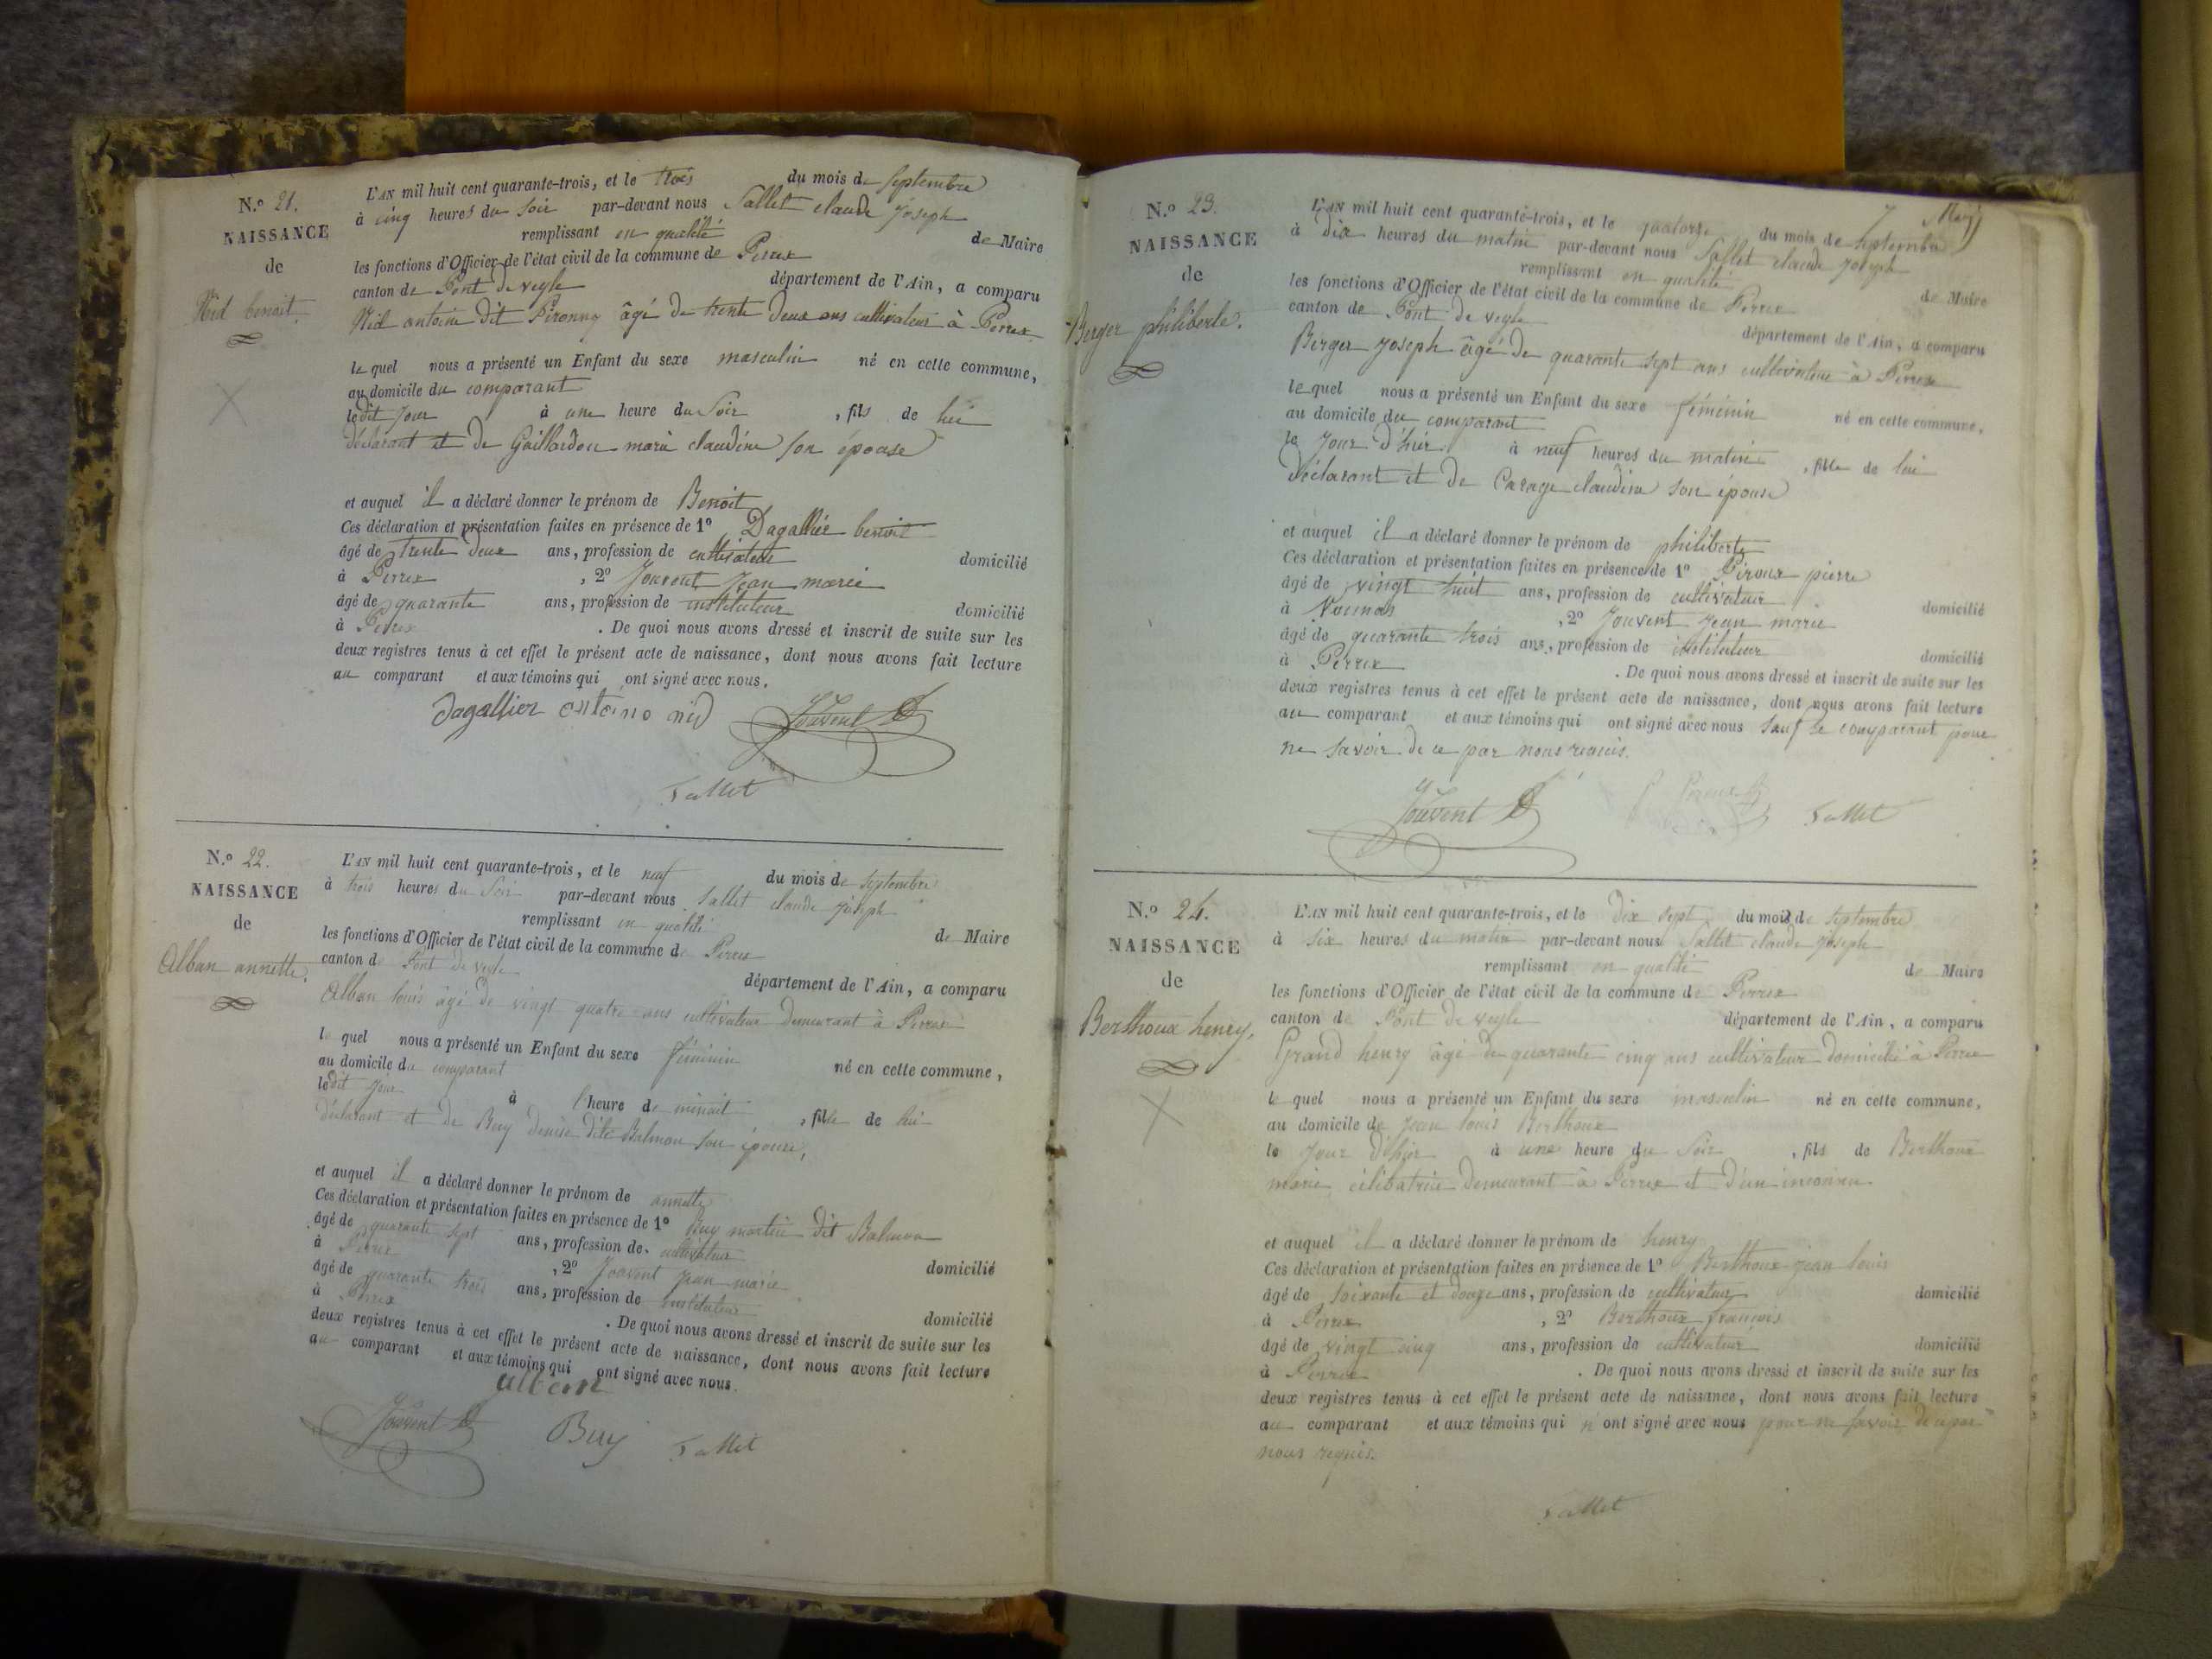 N.º 21.
NAISSANCE
de
Nid benoit.
L'AN mil huit cent quarante-trois, et le trois du mois de Septembre
à cinq heures du Soir par-devant nous Sallet claude Joseph
remplissant en qualité de Maire
les fonctions d'Officier de l'état civil de la commune de Perrex
canton de Pont de veyle département de l'Ain, a comparu
Nid antoine dit Pironny âgé de trente deux ans cultivateur à Perrex
lequel nous a présenté un Enfant du sexe masculin né en cette commune,
au domicile du comparant
ledit jour à une heure du Soir, fils de lui
déclarant et de Gaillardon marie claudine son épouse
et auquel il a déclaré donner le prénom de Benoit
Ces déclaration et présentation faites en présence de 1º Dagallier benoit
âgé de trente deux ans, profession de cultivateur domicilié
à Perrex, 2º Jouvent Jean marie
âgé de quarante ans, profession de instituteur domicilié
à Perrex. De quoi nous avons dressé et inscrit de suite sur les
deux registres tenus à cet effet le présent acte de naissance, dont nous avons fait lecture
au comparant et aux témoins qui ont signé avec nous.
Dagallier antoine nid Jouvent
Sallet
N.º 22.
NAISSANCE
de
Alban annette.
L'AN mil huit cent quarante-trois, et le neuf du mois de Septembre
à trois heures du Soir par-devant nous Sallet claude Joseph
remplissant en qualité de Maire
les fonctions d'Officier de l'état civil de la commune de Perrex
canton de Pont de veyle département de l'Ain, a comparu
Alban louis âgé de vingt quatre ans cultivateur demeurant à Perrex
lequel nous a présenté un Enfant du sexe féminin né en cette commune,
au domicile du comparant
ledit jour à l'heure de minuit, fille de lui
déclarant et de Buy denise dite Balmon son épouse,
et auquel il a déclaré donner le prénom de annette
Ces déclaration et présentation faites en présence de 1º Buy martin dit Balmon
âgé de quarante sept ans, profession de cultivateur domicilié
à Perrex, 2º Jouvent Jean marie
âgé de quarante trois ans, profession de instituteur domicilié
à Perrex. De quoi nous avons dressé et inscrit de suite sur les
deux registres tenus à cet effet le présent acte de naissance, dont nous avons fait lecture
au comparant et aux témoins qui ont signé avec nous.
Jouvent Buy Sallet
N.º 23.
NAISSANCE
de
Berger philiberte.
L'AN mil huit cent quarante-trois, et le quatorze du mois de Septembre
à dix heures du matin par-devant nous Sallet claude Joseph
remplissant en qualité de Maire
les fonctions d'Officier de l'état civil de la commune de Perrex
canton de Pont de veyle département de l'Ain, a comparu
Berger Joseph âgé de quarante sept ans cultivateur à Perrex
lequel nous a présenté un Enfant du sexe féminin né en cette commune,
au domicile du comparant
le jour d'hier à neuf heures du matin, fille de lui
déclarant et de Carage claudine son épouse
et auquel il a déclaré donner le prénom de philiberte
Ces déclaration et présentation faites en présence de 1º Piroux pierre
âgé de vingt huit ans, profession de cultivateur domicilié
à Vonnas, 2º Jouvent Jean marie
âgé de quarante trois ans, profession de instituteur domicilié
à Perrex. De quoi nous avons dressé et inscrit de suite sur les
deux registres tenus à cet effet le présent acte de naissance, dont nous avons fait lecture
au comparant et aux témoins qui ont signé avec nous Sauf le comparant pour
ne savoir de ce par nous requis.
Jouvent P Piroux Sallet
N.º 24.
NAISSANCE
de
Berthoux henry.
L'AN mil huit cent quarante-trois, et le dix sept du mois de Septembre
à six heures du matin par-devant nous Sallet claude Joseph
remplissant en qualité de Maire
les fonctions d'Officier de l'état civil de la commune de Perrex
canton de Pont de veyle département de l'Ain, a comparu
Grand henry âgé de quarante cinq ans cultivateur domicilié à Perrex
lequel nous a présenté un Enfant du sexe masculin né en cette commune,
au domicile de Jean louis Berthoux
le jour d'hier à une heure du Soir, fils de Berthoux
marie célibatrice demeurant à Perrex et d'un inconnu
et auquel il a déclaré donner le prénom de henry
Ces déclaration et présentation faites en présence de 1º Berthoux Jean louis
âgé de soixante et douze ans, profession de cultivateur domicilié
à Perrex, 2º Berthoux françois
âgé de vingt cinq ans, profession de cultivateur domicilié
à Perrex. De quoi nous avons dressé et inscrit de suite sur les
deux registres tenus à cet effet le présent acte de naissance, dont nous avons fait lecture
au comparant et aux témoins qui n'ont signé avec nous pour ne savoir de ce par
nous requis.
Sallet